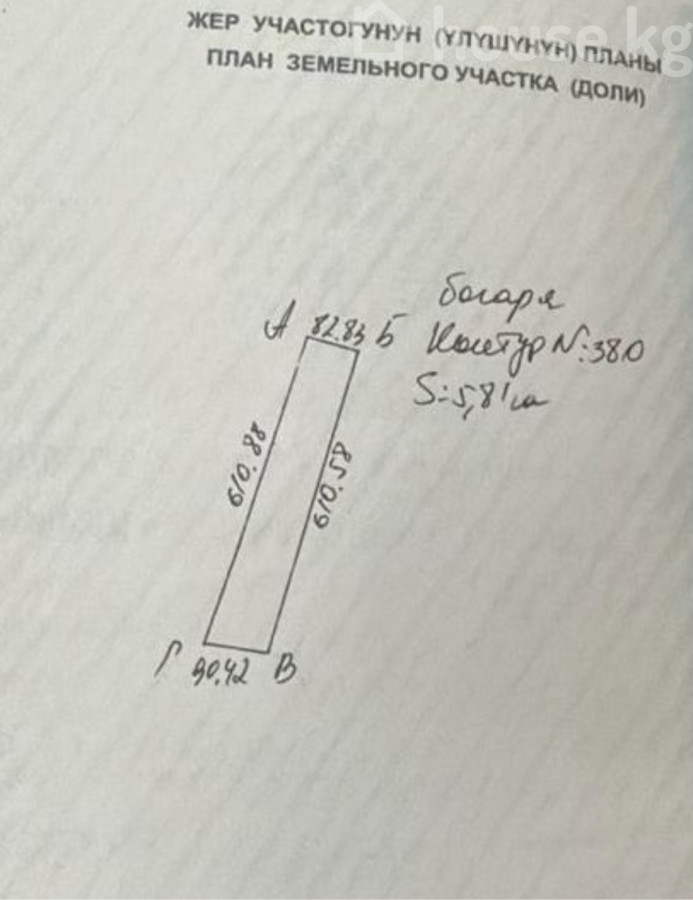 house.kg
ЖЕР УЧАСТОГУНУН (ҮЛҮШҮНҮН) ПЛАНЫ
ПЛАН ЗЕМЕЛЬНОГО УЧАСТКА (ДОЛИ)
богаря
А 82.83 Б Контур №:380
S=5,8 га
610.88
610.58
Г 90.42 В